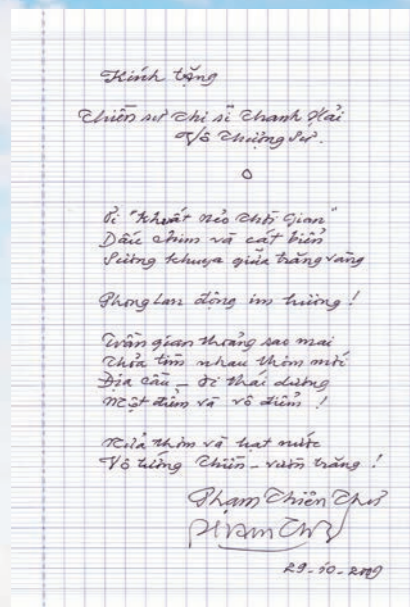 Kính tặng
Thiền sư Thi sĩ Thanh Hải
Vô Thượng Sư.
Đi "Khuất nẻo Thời Gian"
Dấu chim và cát biển
Sương khuya giữa trăng vàng
Phong Lan động im hương!
Trần gian thoảng sao mai
Thỏa tìm nhau thơm mới
Địa cầu - đi thái dương
Một điểm và vô điểm!
Nửa thơm và hạt nước
Vô tướng Thiền - vườn trăng!
Phạm Thiên Thư
29-10-2009